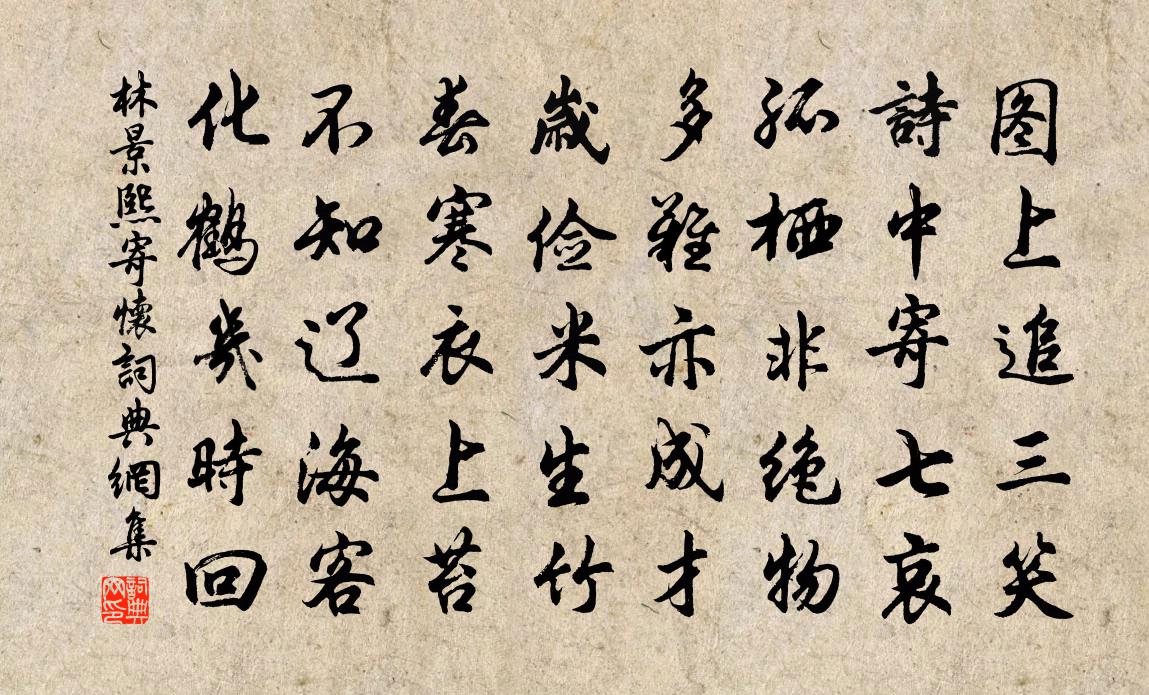 图上追三笑
詩中寄七哀
孤栖非绝物
多難亦成才
歳俭米生竹
春寒衣上苔
不知辽海客
化鶴幾時回
林景熙寄懷詞典網集
詞典网印